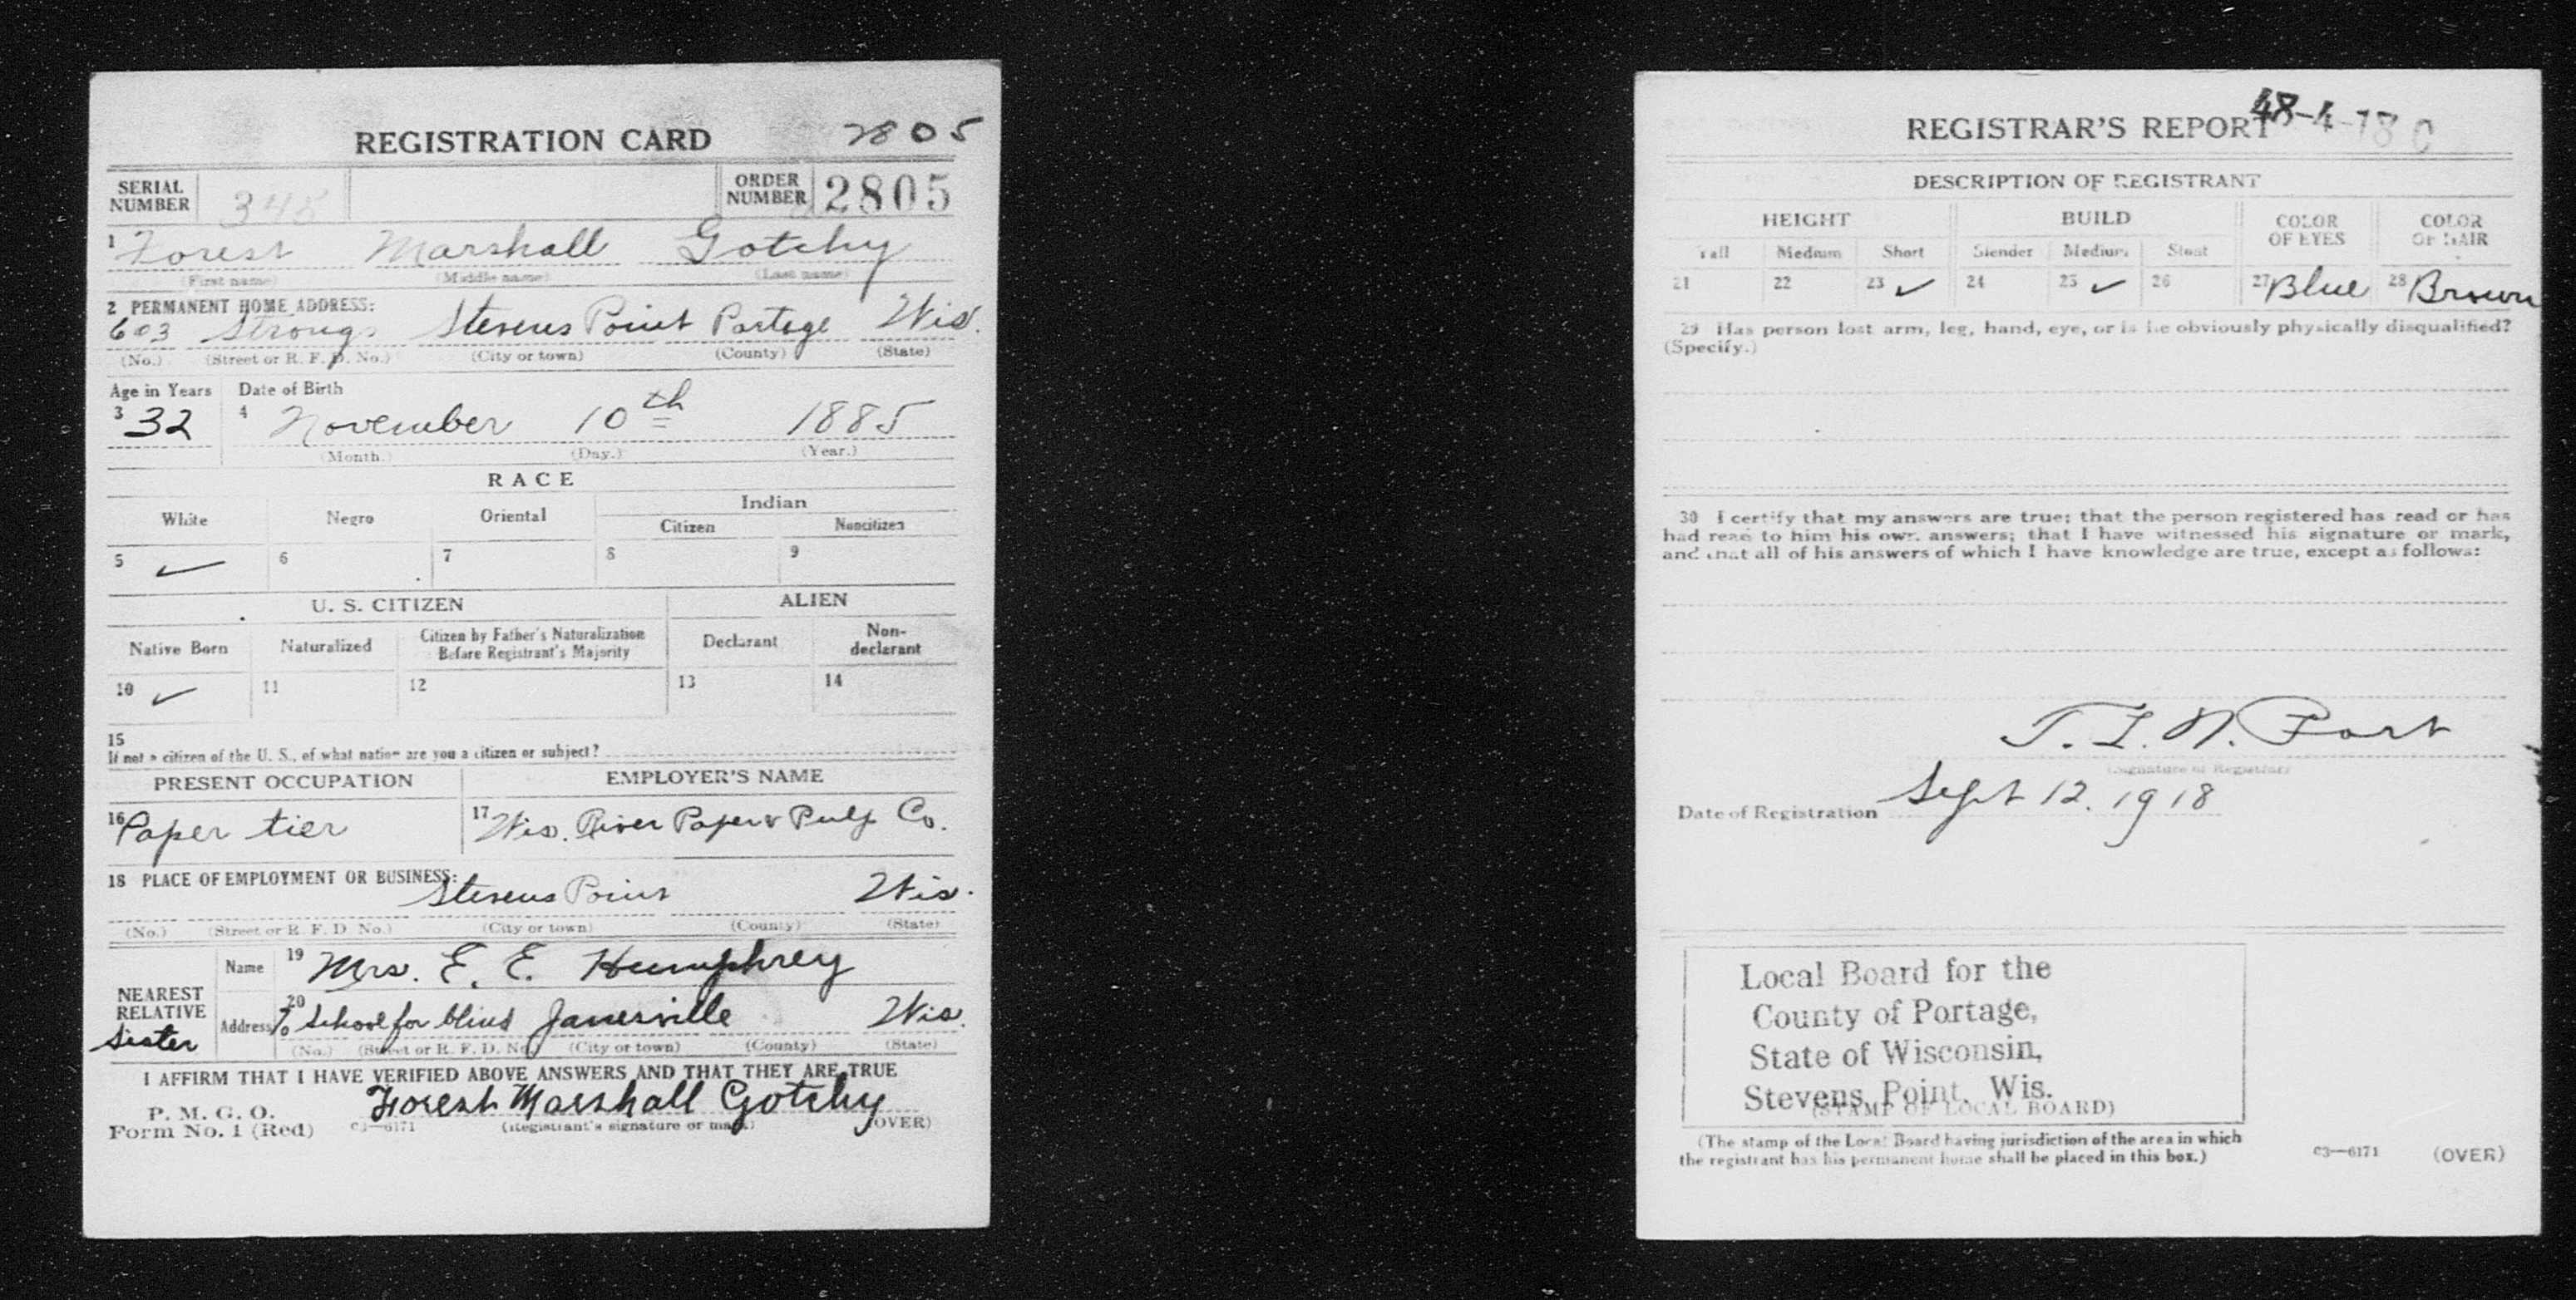 REGISTRATION CARD 2805
SERIAL NUMBER 345 ORDER NUMBER 2805
1 Forest Marshall Gotchy
(First name) (Middle name) (Last name)
2 PERMANENT HOME ADDRESS:
603 Strongs Stevens Point Portage Wis.
(No.) (Street or R. F. D. No.) (City or town) (County) (State)
Age in Years Date of Birth
3 32 4 November 10th 1885
(Month.) (Day.) (Year.)
RACE
White Negro Oriental Indian
Citizen Noncitizen
5 ✓ 6 7 8 9
U. S. CITIZEN ALIEN
Native Born Naturalized Citizen by Father's Naturalization Before Registrant's Majority Declarant Non-declarant
10 ✓ 11 12 13 14
15
If not a citizen of the U. S., of what nation are you a citizen or subject?
PRESENT OCCUPATION EMPLOYER'S NAME
16 Paper tier 17 Wis. River Paper & Pulp Co.
18 PLACE OF EMPLOYMENT OR BUSINESS:
Stevens Point Wis.
(No.) (Street or R. F. D. No.) (City or town) (County) (State)
NEAREST RELATIVE Sister
Name 19 Mrs. E. E. Humphrey
Address 20 % School for blind Janesville Wis.
(No.) (Street or R. F. D. No.) (City or town) (County) (State)
I AFFIRM THAT I HAVE VERIFIED ABOVE ANSWERS AND THAT THEY ARE TRUE
P. M. G. O.
Form No. 1 (Red) c3—6171 Forest Marshall Gotchy
(Registrant's signature or mark) (OVER)
REGISTRAR'S REPORT 48-4-18 C
DESCRIPTION OF REGISTRANT
HEIGHT BUILD COLOR OF EYES COLOR OF HAIR
Tall Medium Short Slender Medium Stout
21 22 23 ✓ 24 25 ✓ 26 27 Blue 28 Brown
29 Has person lost arm, leg, hand, eye, or is he obviously physically disqualified?
(Specify.)
30 I certify that my answers are true; that the person registered has read or has
had read to him his own answers; that I have witnessed his signature or mark,
and that all of his answers of which I have knowledge are true, except as follows:
(Signature of Registrar)
Date of Registration Sept 12. 1918
Local Board for the
County of Portage,
State of Wisconsin,
Stevens Point, Wis.
(STAMP OF LOCAL BOARD)
(The stamp of the Local Board having jurisdiction of the area in which
the registrant has his permanent home shall be placed in this box.)
c3—6171 (OVER)